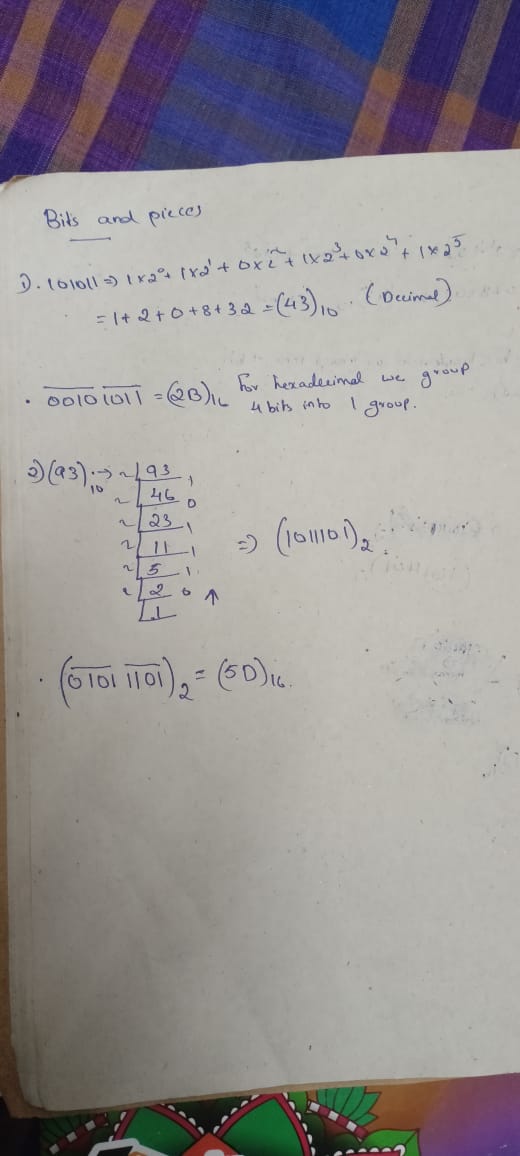 Bits and pieces
1). 101011 ⇒ 1×2⁰ + 1×2¹ + 0×2² + 1×2³ + 0×2⁴ + 1×2⁵
= 1+2+0+8+32 = (43)₁₀. (Decimal)
. 0010 1011 = (2B)₁₆ For hexadecimal we group
4 bits into 1 group.
2) (93)₁₀ → 2 | 93 1
2 | 46 0
2 | 23 1
2 | 11 1 ⇒ (1011101)₂.
2 | 5 1.
2 | 2 0 ↑
1
. (0101 1101)₂ = (5D)₁₆.